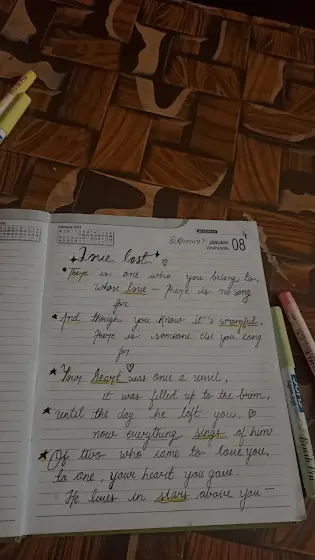 JANUARY
Wednesday
08
Love lost
There is one who you belong to,
whose love - there is no song
for
And though you know it's wrongful,
there is someone else you long
for
Your heart was once a vessel,
it was filled up to the brim,
until the day he left you..
now everything sings of him
Of two who came to love you,
to one, your heart you gave
He lives in stars above you —